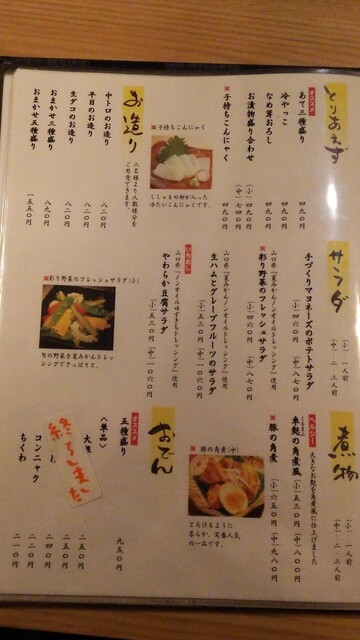 とりあえず
オススメ
あて三種盛り 四九〇円
冷やっこ 四九〇円
なめ茸おろし 四九〇円
お漬物盛り合わせ (小)四九〇円 (中)七四〇円
子持ちこんにゃく 四九〇円
子持ちこんにゃく
ししゃもの卵が入った、
冷たいこんにゃくです。
お造り
二名様より人数様分を
ご用意できます。
中トロのお造り 八二〇円
平目のお造り 八二〇円
生ダコのお造り 八二〇円
おまかせ三種盛り 八九〇円
おまかせ五種盛り 一五五〇円
サラダ
(小)一人前
(中)二、三人前
手づくりマヨネーズのポテトサラダ
(小)四六〇円 (中)八七〇円
彩り野菜のフレッシュサラダ
(小)四七〇円 (中)八七〇円
山口県「夏みかんノンオイルドレッシング」使用
生ハムとグレープフルーツのサラダ
(小)五三〇円 (中)一〇六〇円
山口県「夏みかんノンオイルドレッシング」使用
いち押し
やわらか豆腐サラダ
(小)五三〇円 (中)一〇六〇円
山口県「ノンオイルゆずきちドレッシング」使用
彩り野菜のフレッシュサラダ(小)
旬の野菜か夏みかんドレッ
シングでさっぱりと。
煮物
(小)一人前
(中)二、三人前
ヘルシー
大きなお麩を角煮風に仕上げました
車麩の角煮風
(小)五三〇円 (中)八〇〇円
豚の角煮
(小)六五〇円 (中)九八〇円
豚の角煮(中)
とろけるように
柔らか、定番人気
の一品です。
おでん
オススメ
五種盛り 九五〇円
〈単品〉
大 二五〇円
二五〇円
コンニャク 二二〇円
ちくわ 二一〇円
終了しました